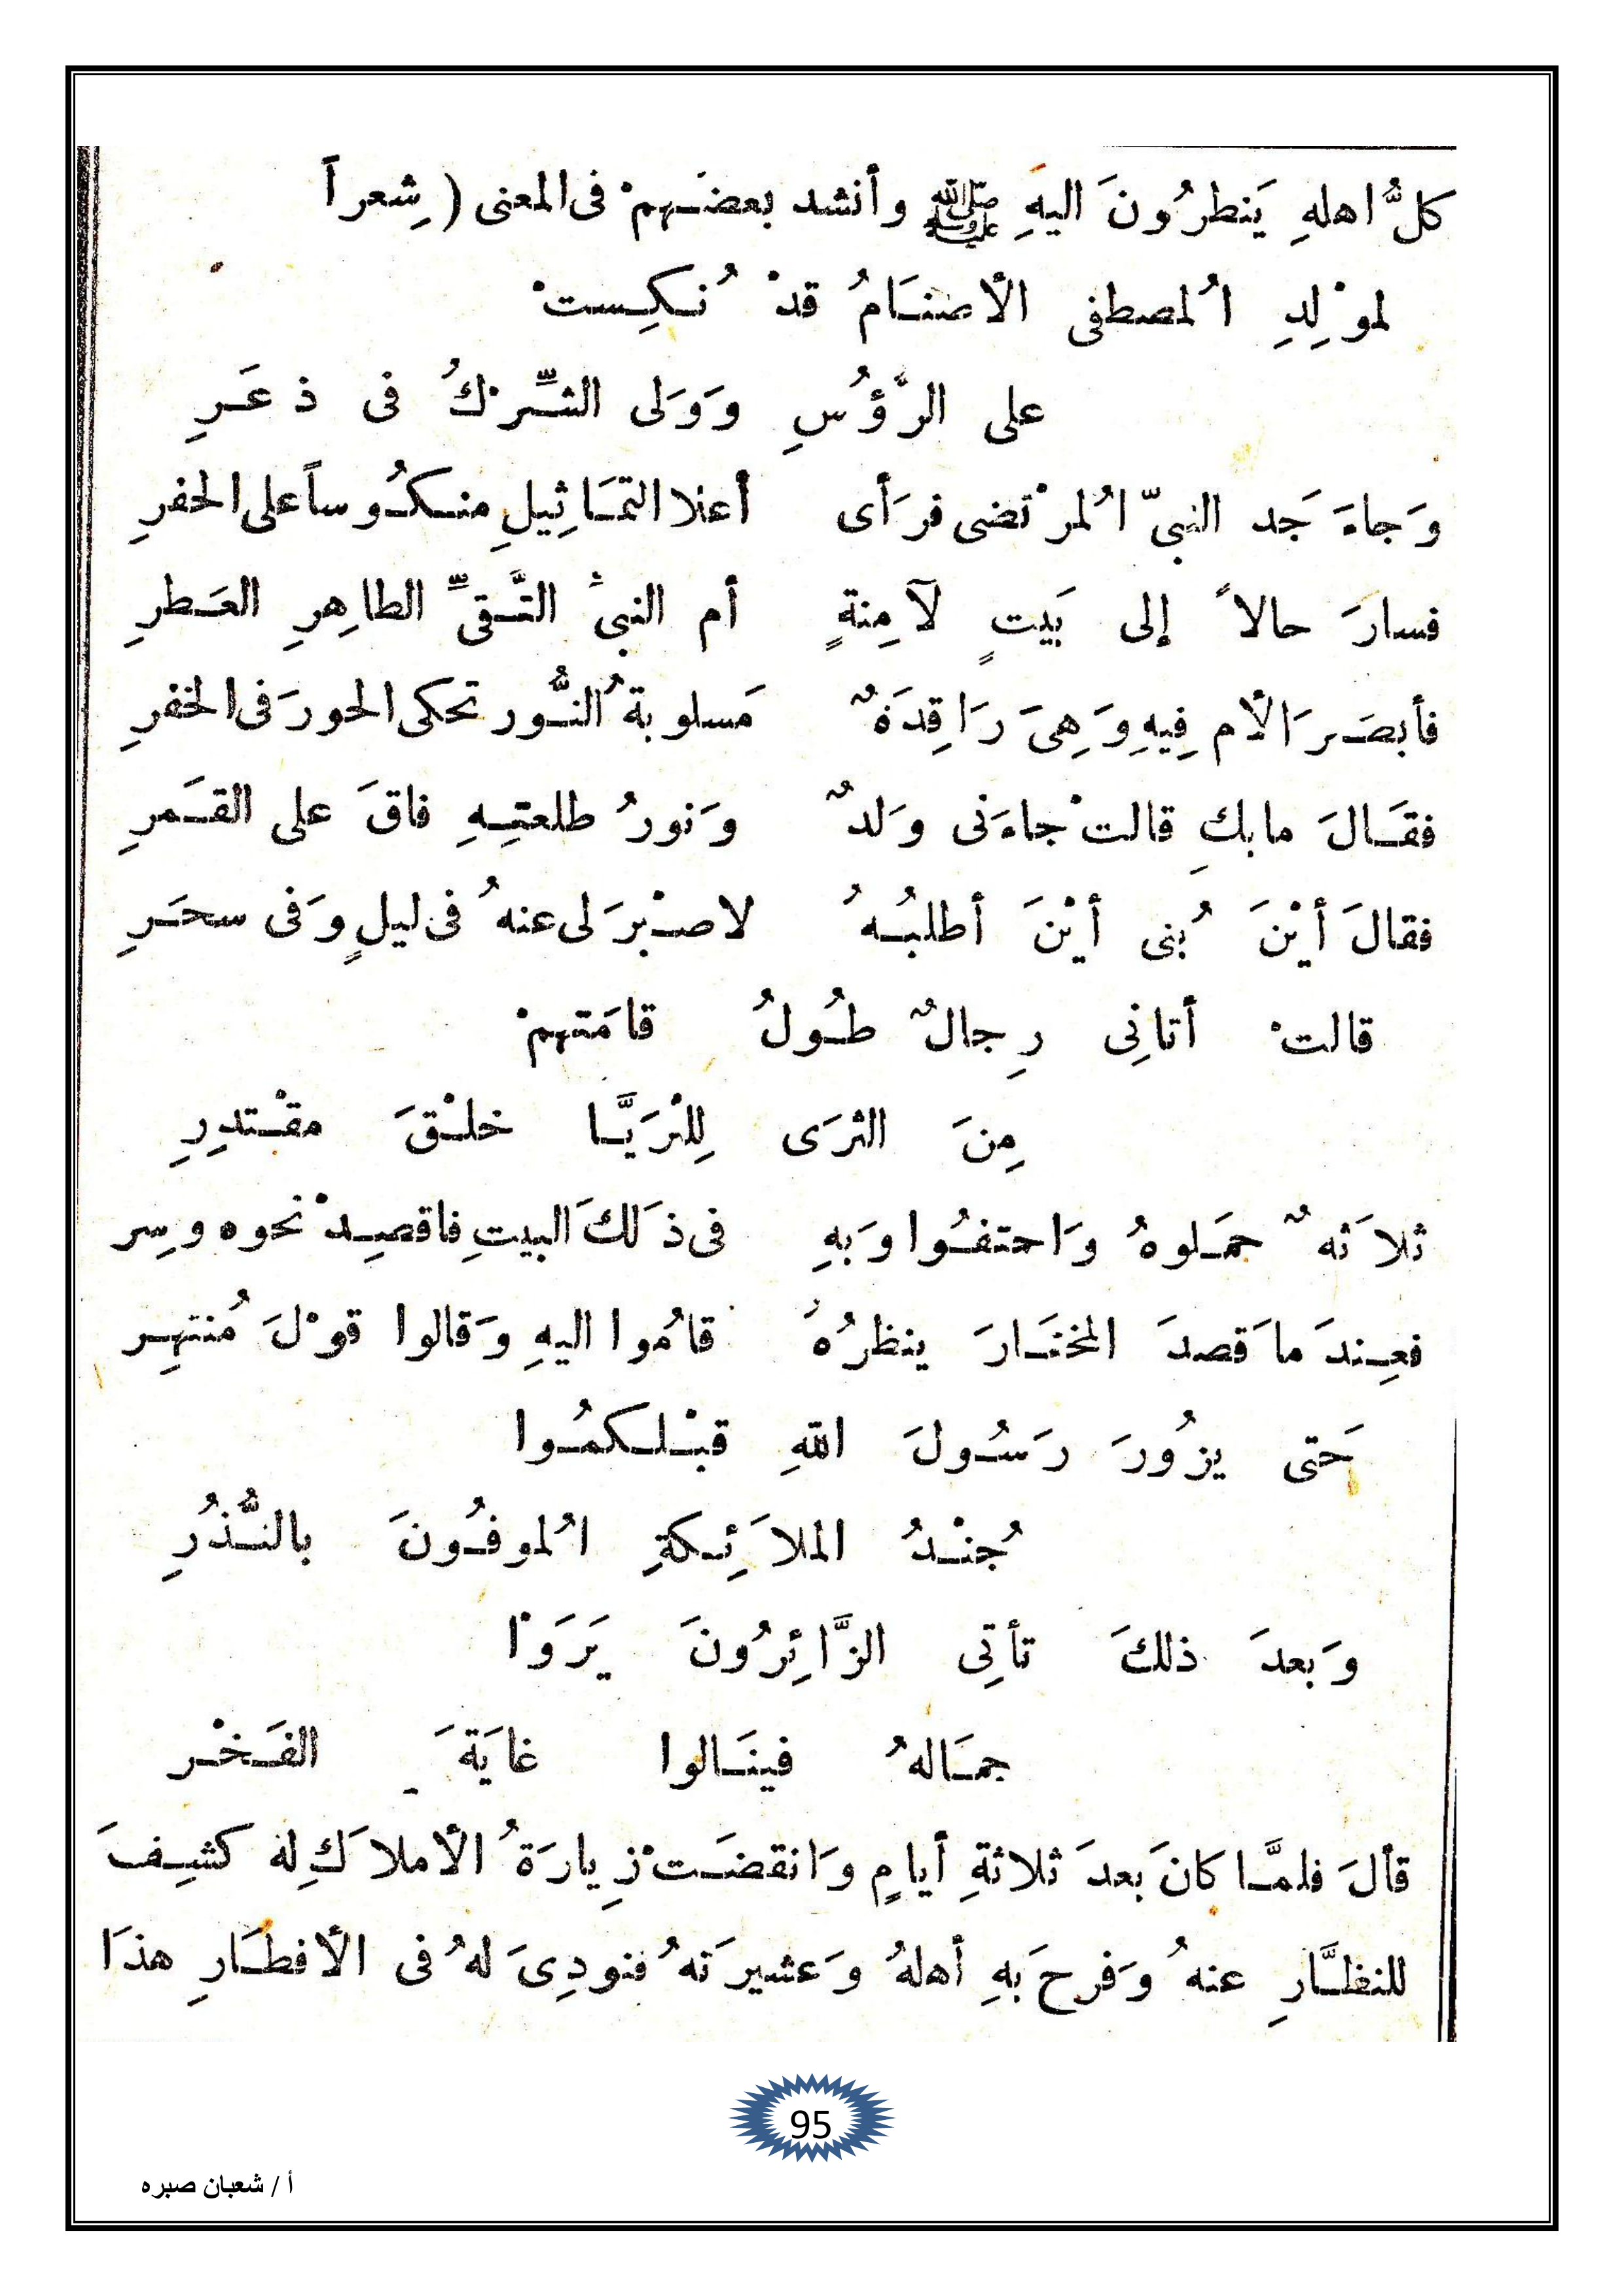 كلُّ اهلهِ يَنطرُونَ اليهِ ﷺ وأنشد بعضَهمْ فى المعنى (شِعراً
لموْلِدِ اُلمصطفى الأصنَامُ قدْ نُكِستْ
على الرَّؤُسِ وَوَلى الشِّرْكُ فى ذعَرِ
وَجاءَ جَد النبىّ اُلمرْتضى فرَأى أعلا التمَاثِيلِ منكُوساً على الحفرِ
فسارَ حالاً إلى بَيتٍ لآمِنةٍ أم النبىُّ التَّقىِّ الطاهِرِ العَطرِ
فأبصَرَ الأم فِيهِ وَهِىَ رَاقِدَةٌ مَسلوبةُ النُّور تحكى الحورَ فى الخفرِ
فقَالَ مابكِ قالتْ جاءَنى وَلدٌ وَنورُ طلعتِهِ فاقَ على القَمرِ
فقالَ أيْنَ بُنى أيْنَ أطلبُهُ لاصبْرَ لى عنهُ فى ليلٍ وَفى سحَرِ
قالتْ أتانِى رِجالٌ طُولُ قامَتهمْ
مِنَ الثرَى لِلثرَيَّا خلْقَ مقْتدِرِ
ثلاَثهٌ حمَلوهُ وَاحتفُوا وَبهِ فى ذَلكَ البيتِ فاقصِدْ نحوه وسِر
فعِندَ ماَقصدَ المختَارَ ينظرُهُ قامُوا اليهِ وَقالوا قوْلَ مُنتهِر
حَتى يزُورَ رَسُولَ اللهِ قبْلكمُوا
جُنْدُ الملاَئِكةِ اُلموفُونَ بالنُّذُرِ
وَبعدَ ذلكَ تأتِى الزَّائِرُونَ يَرَوْا
جمَالهُ فينَالوا غايَةَ الفَخْر
قألَ فلمَّا كانَ بعدَ ثلاثةِ أيامٍ وَانقضَتْ زِيارَةُ الأملاَكِ له كشِفَ
للنظَّارِ عنهُ وَفرحَ بهِ أهلهُ وَعشيرَتهُ فنودِىَ لهُ فى الأفطَارِ هذَا
95
أ / شعبان صبره